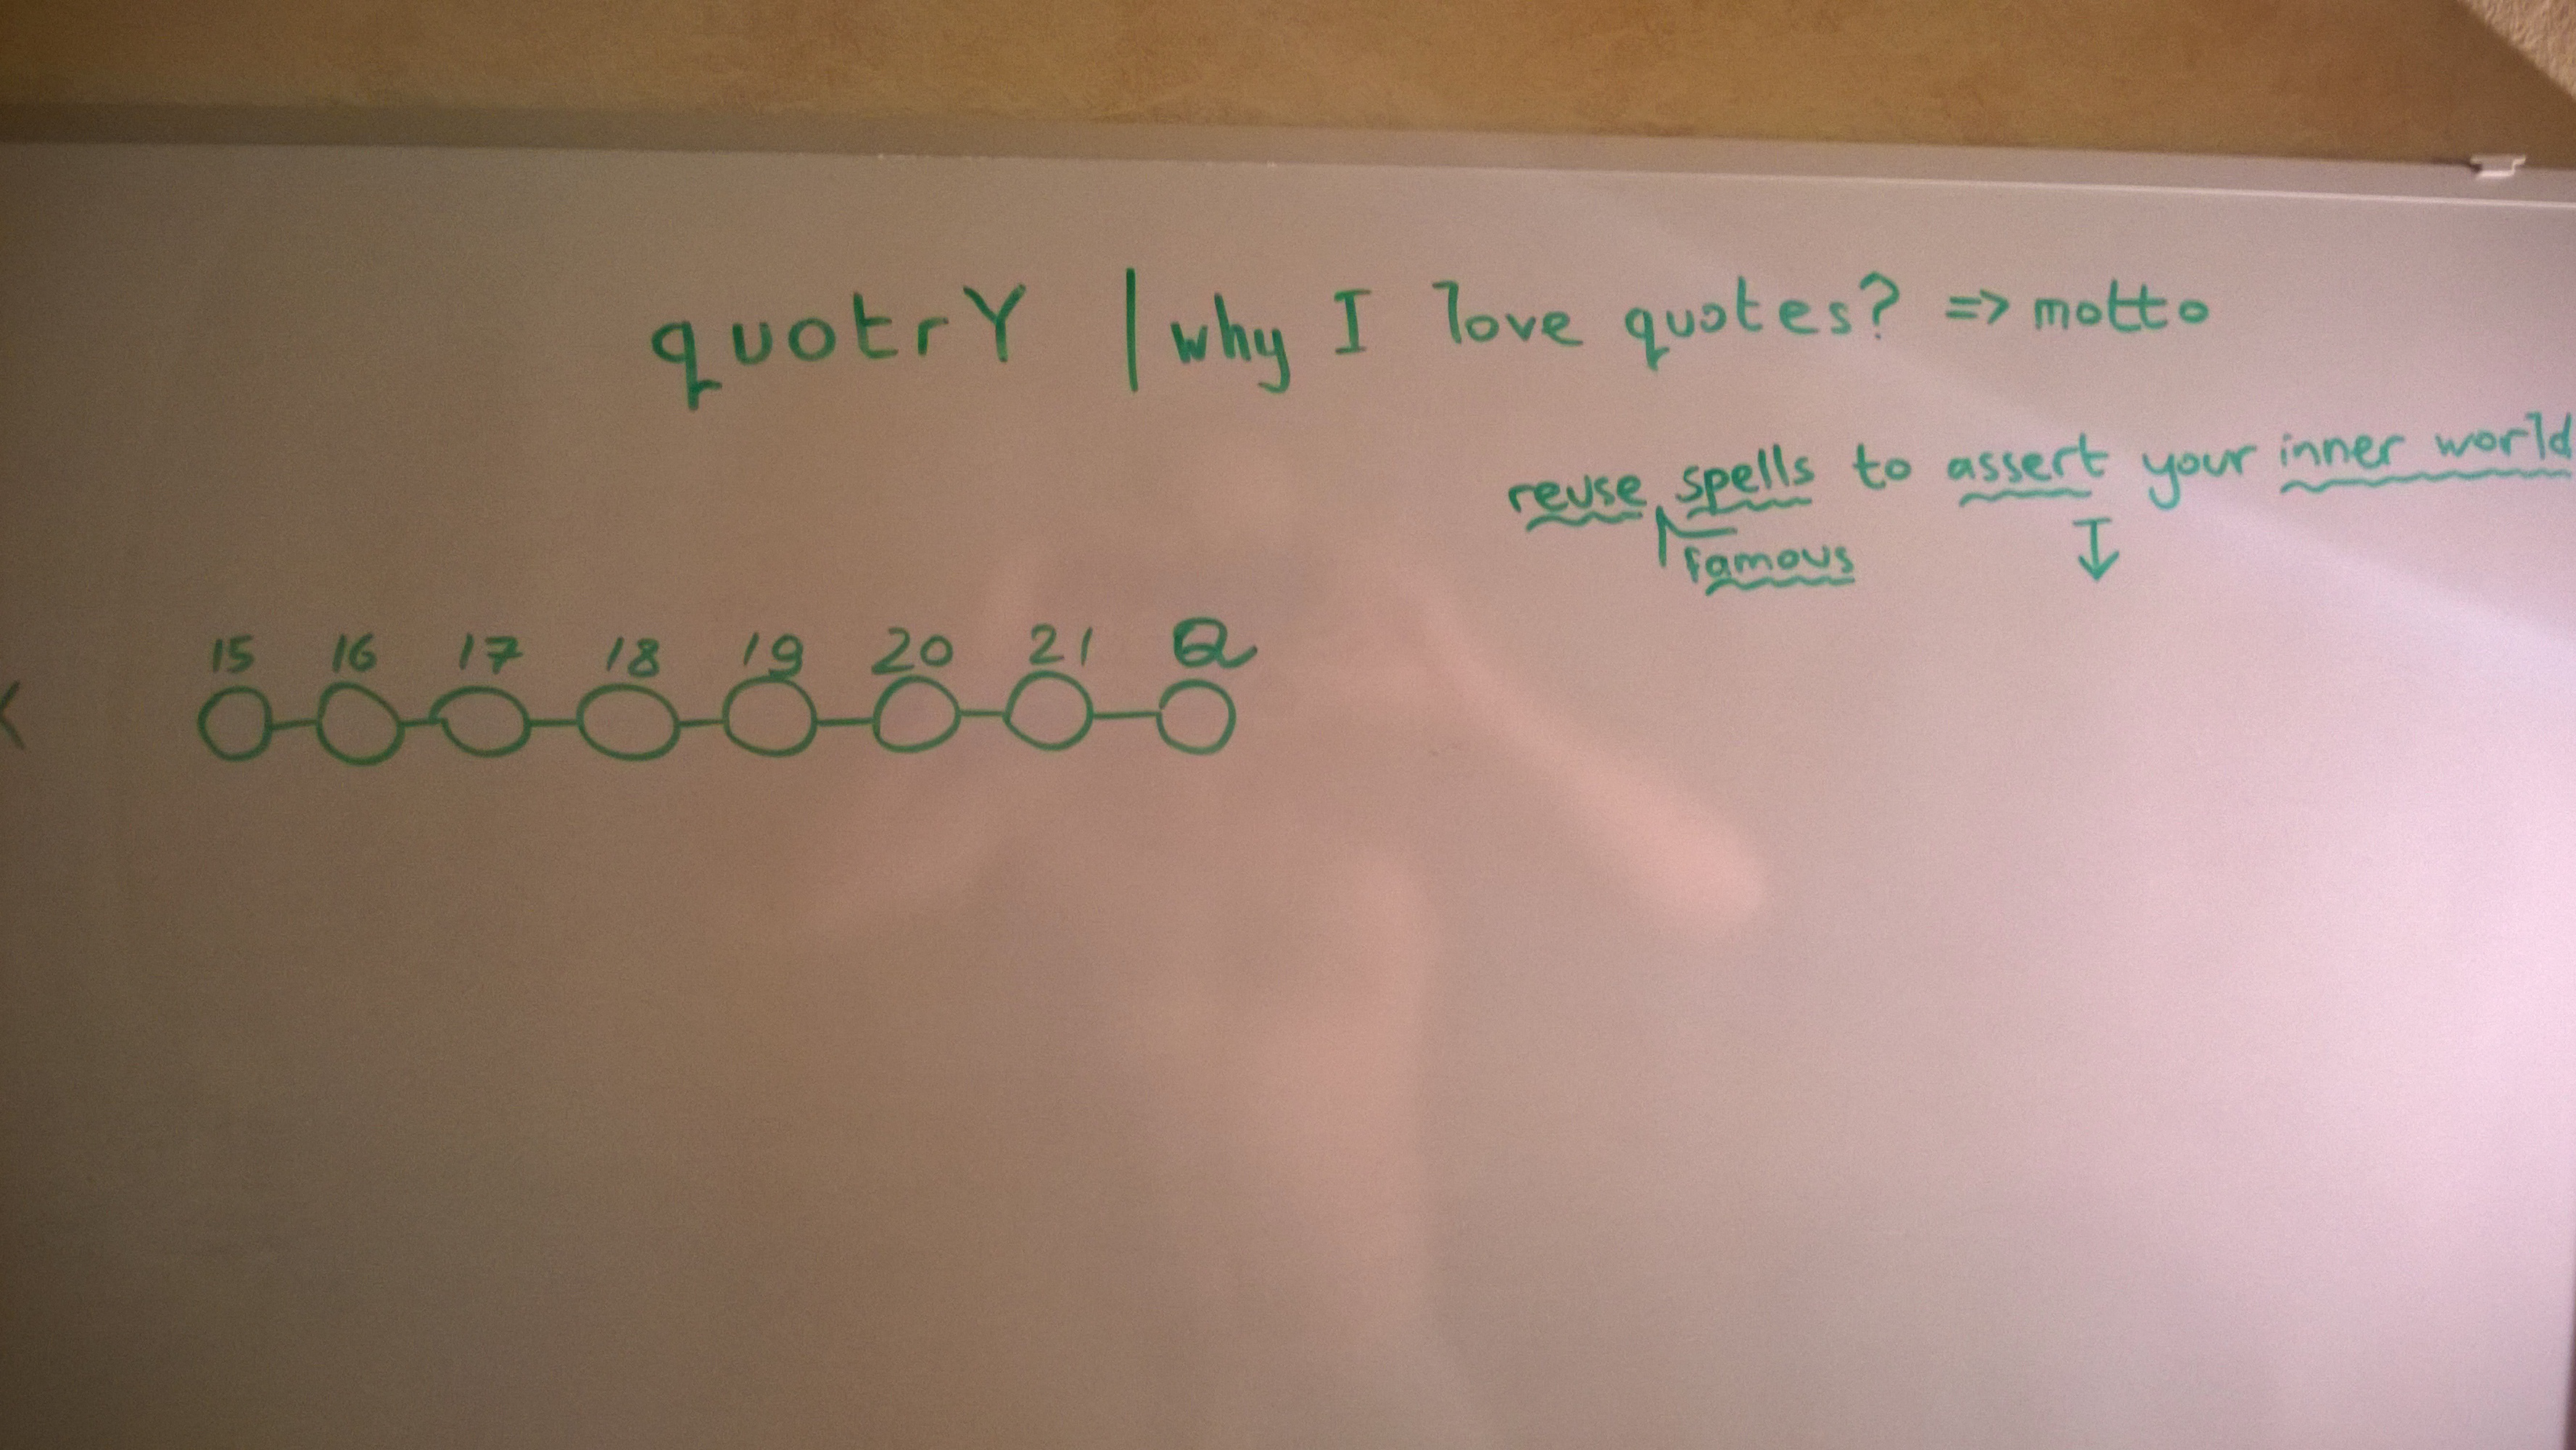 quotrY | why I love quotes? => motto
reuse spells to assert your inner world
famous
15 16 17 18 19 20 21 Q